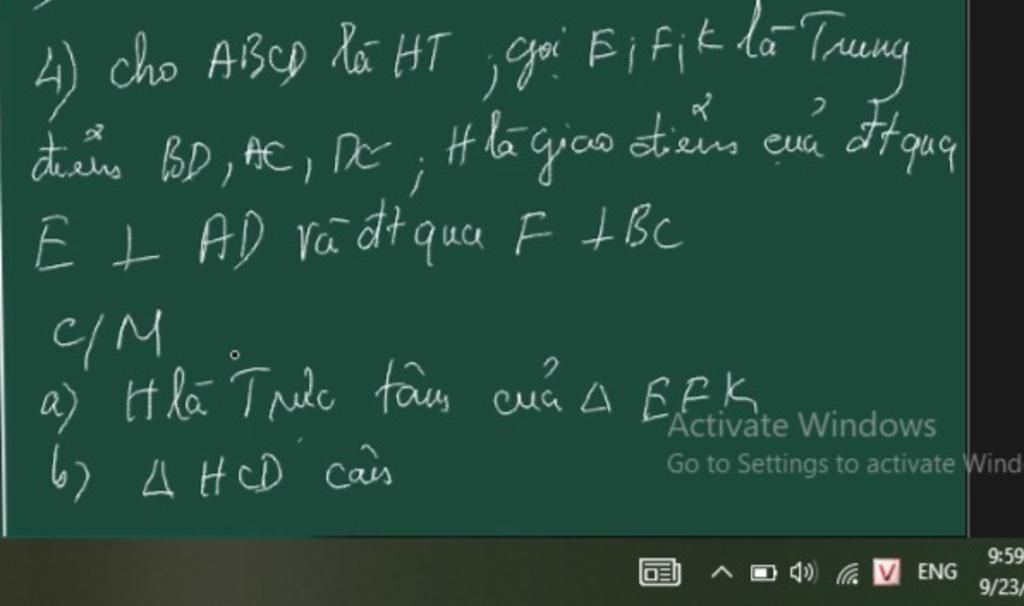 4) cho ABCD là HT, gọi E, F, K là Trung
điểm BD, AC, DC, H là giao điểm của đt qua
E ⊥ AD và đt qua F ⊥ BC
C/M
a) H là Trực tâm của Δ EFK
b) Δ HCD cân
Activate Windows
Go to Settings to activate Wind
ENG
9:59
9/23/